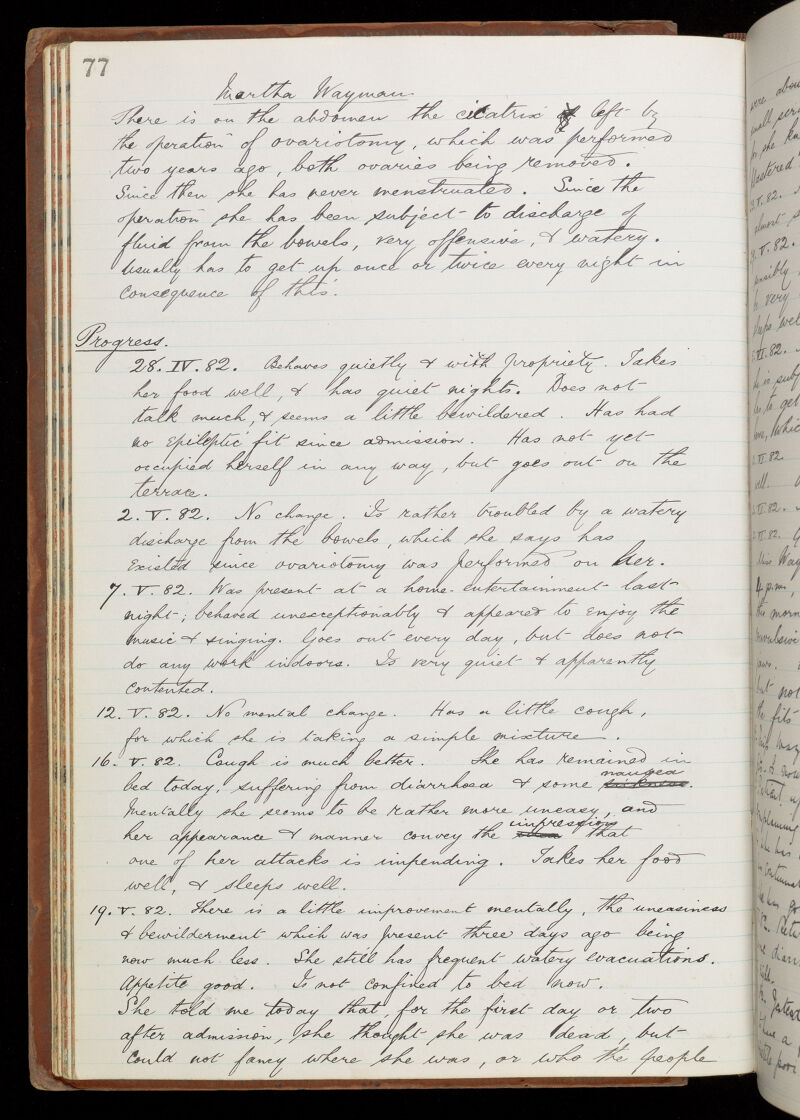 77
Martha Wayman
There is on the abdomen the cicatrix left by
the operation of ovariotomy, which was performed
two years ago, both ovaries being removed.
Since then she has never menstruated. Since the
operation she has been subject to discharge of
fluid from the bowels, very offensive, & watery.
Usually has to get up once or twice every night in
consequence of this.
Progress.
28. IV. 82. Behaves quietly & with propriety. Takes
her food well, & has quiet nights. Does not
talk much, & seems a little bewildered. Has had
no Epileptic fit since admission. Has not yet
occupied herself in any way, but goes out on the
terrace.
2. V. 82. No change. Is rather troubled by a watery
discharge from the bowels, which she says has
existed since ovariotomy was performed on her.
7. V. 82. Was present at a home-entertainment last
night; behaved unexceptionably & appeared to enjoy the
music & singing. Goes out every day, but does not
do any work indoors. Is very quiet & apparently
contented.
12. V. 82. No mental change. Has a little cough,
for which she is taking a simple mixture.
16. V. 82. Cough is much better. She has remained in
bed today, suffering from diarrhoea & some nausea.
Mentally she seems to be rather more uneasy, and
her appearance & manner convey the impression that
one of her attacks is impending. Takes her food
well, & sleeps well.
19. V. 82. There is a little improvement mentally, the uneasiness
& bewilderment which was present three days ago being
now much less. She still has frequent watery evacuations.
Appetite good. Is not confined to bed now.
She told me today that, for the first day or two
after admission, she thought she was dead, but
could not fancy where she was, or who the people